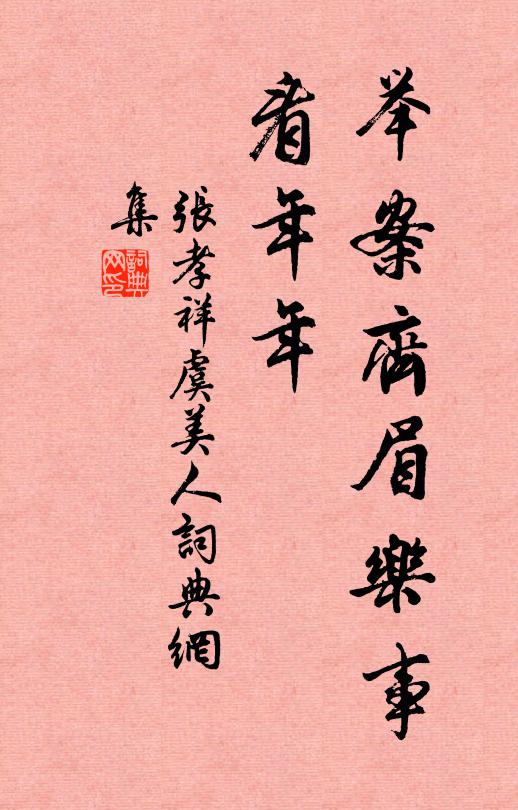 举案齊眉樂事
看年年
張孝祥虞美人詞典網
集
詞典网印